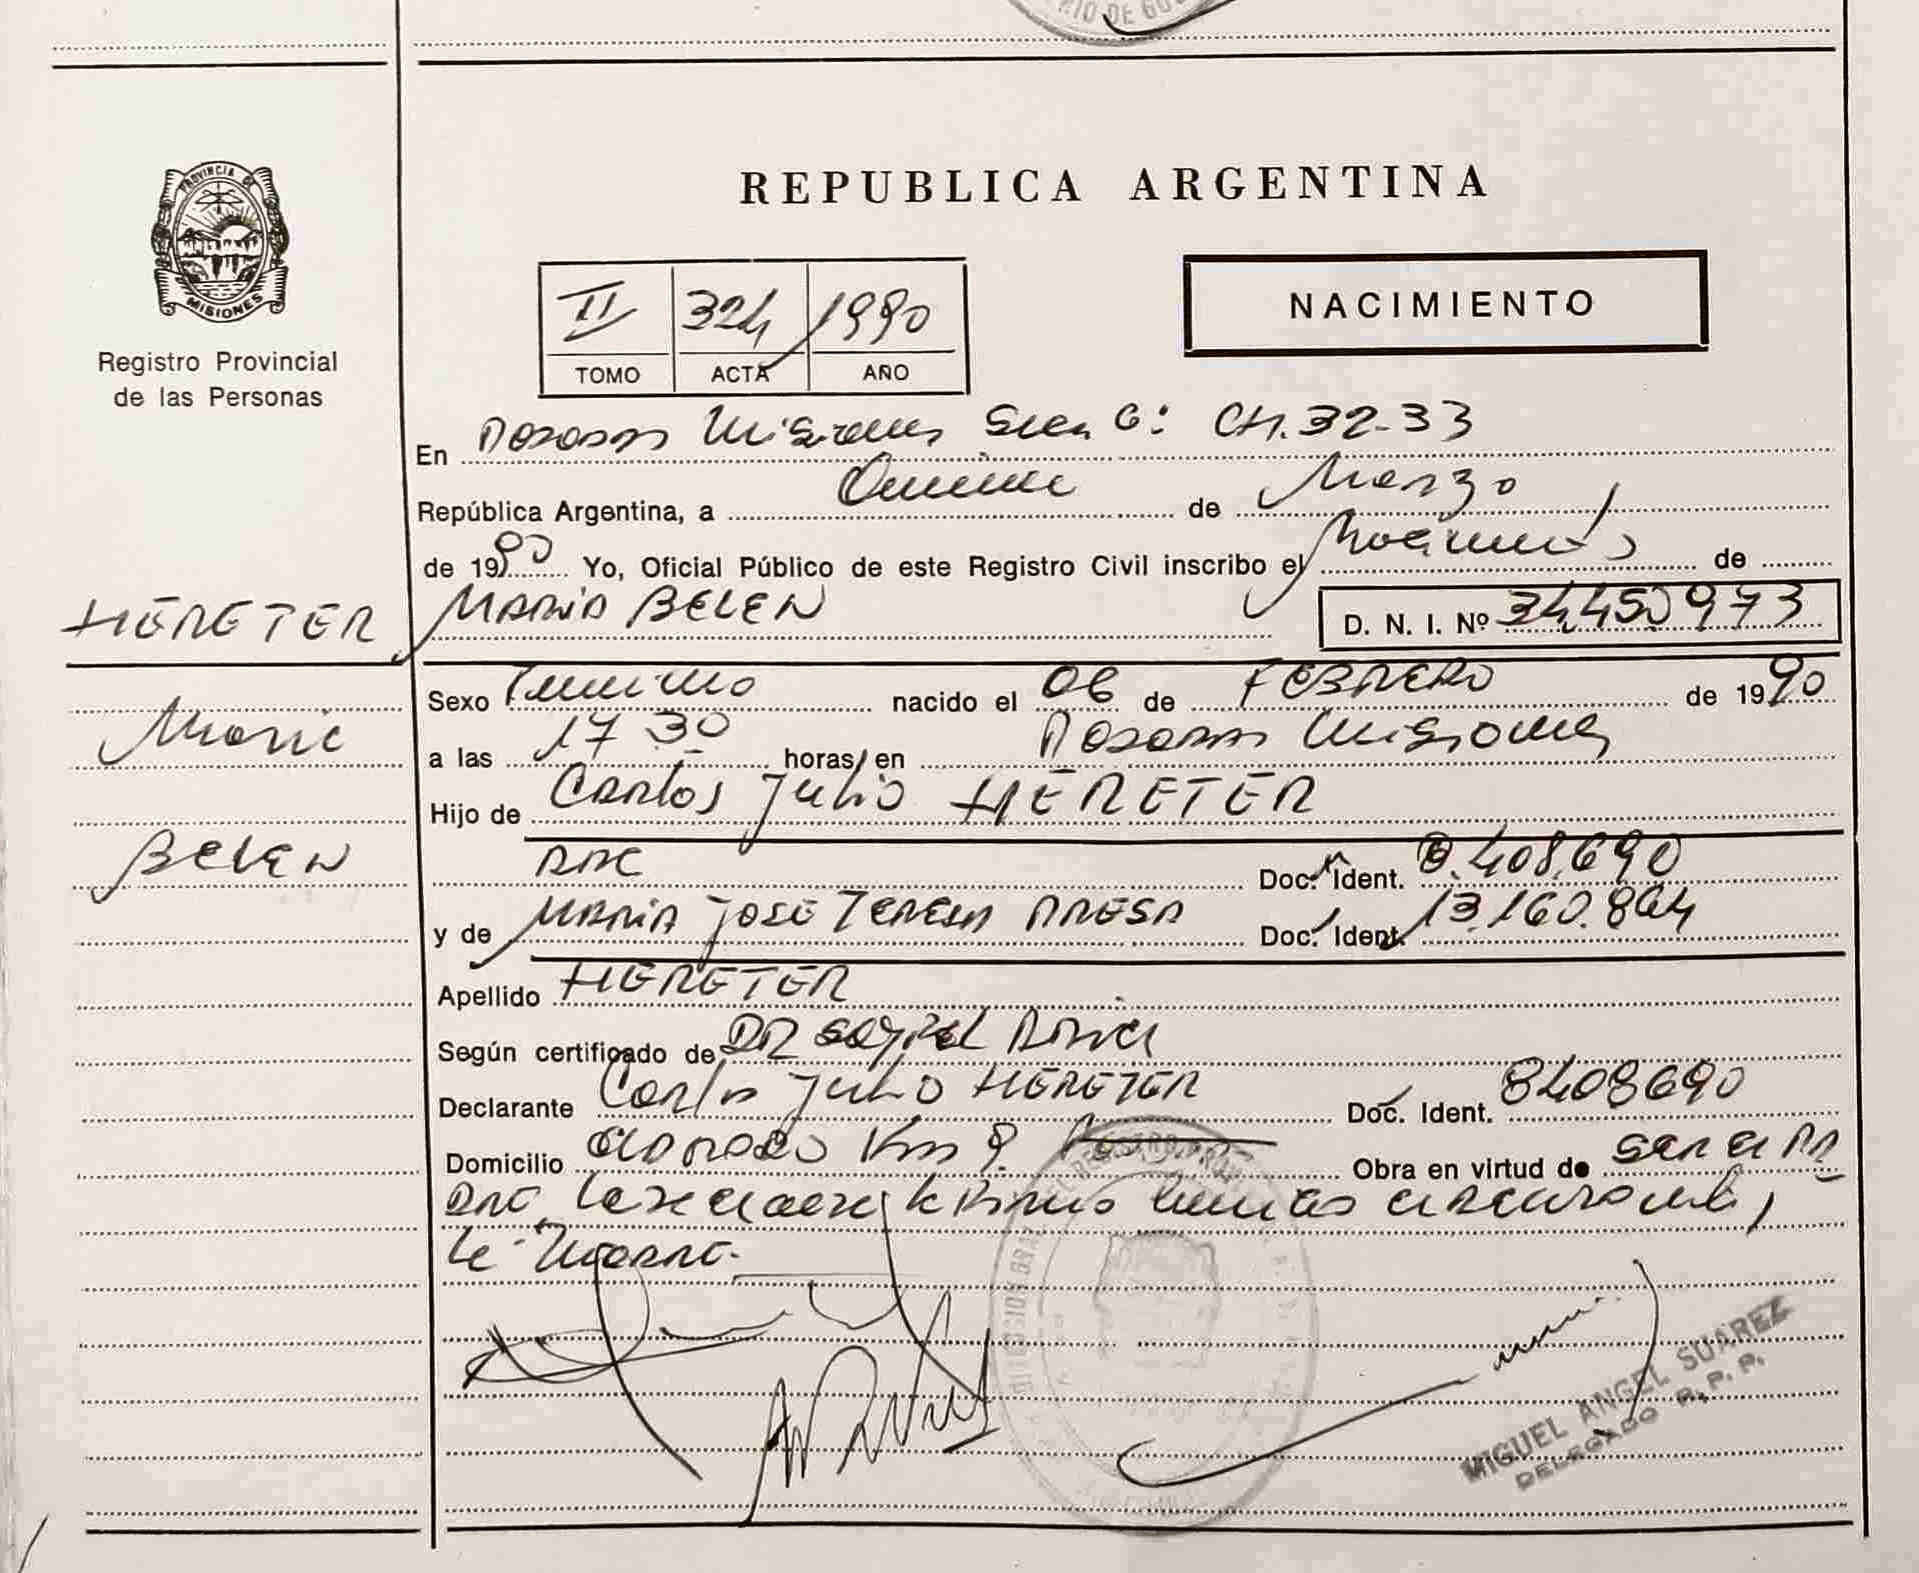 RIO DE GO
PROVINCIA DE
MISIONES
Registro Provincial
de las Personas
REPUBLICA ARGENTINA
II 324 1990
TOMO ACTA AÑO
NACIMIENTO
En Posadas Misiones Secc. G: CH. 32-33
República Argentina, a Quince de Marzo
de 1990 Yo, Oficial Público de este Registro Civil inscribo el Nacimiento de
HERETER MARIA BELEN D. N. I. Nº 34.450973
Maria
BELEN
Sexo Femenino nacido el 06 de FEBRERO de 1990
a las 17 30 horas en Posadas Misiones
Hijo de Carlos Julio HERETER
ARG Doc. Ident. 8.408.690
y de MARIA JOSE TERESA ARESA Doc. Ident. 13.160.864
Apellido HERETER
Según certificado de DR
Declarante Carlos Julio HERETER Doc. Ident. 8408690
Domicilio Eldorado Km 9. Obra en virtud de ser el PA
DRE
MIGUEL ANGEL SUAREZ
DELEGADO R. P. P.